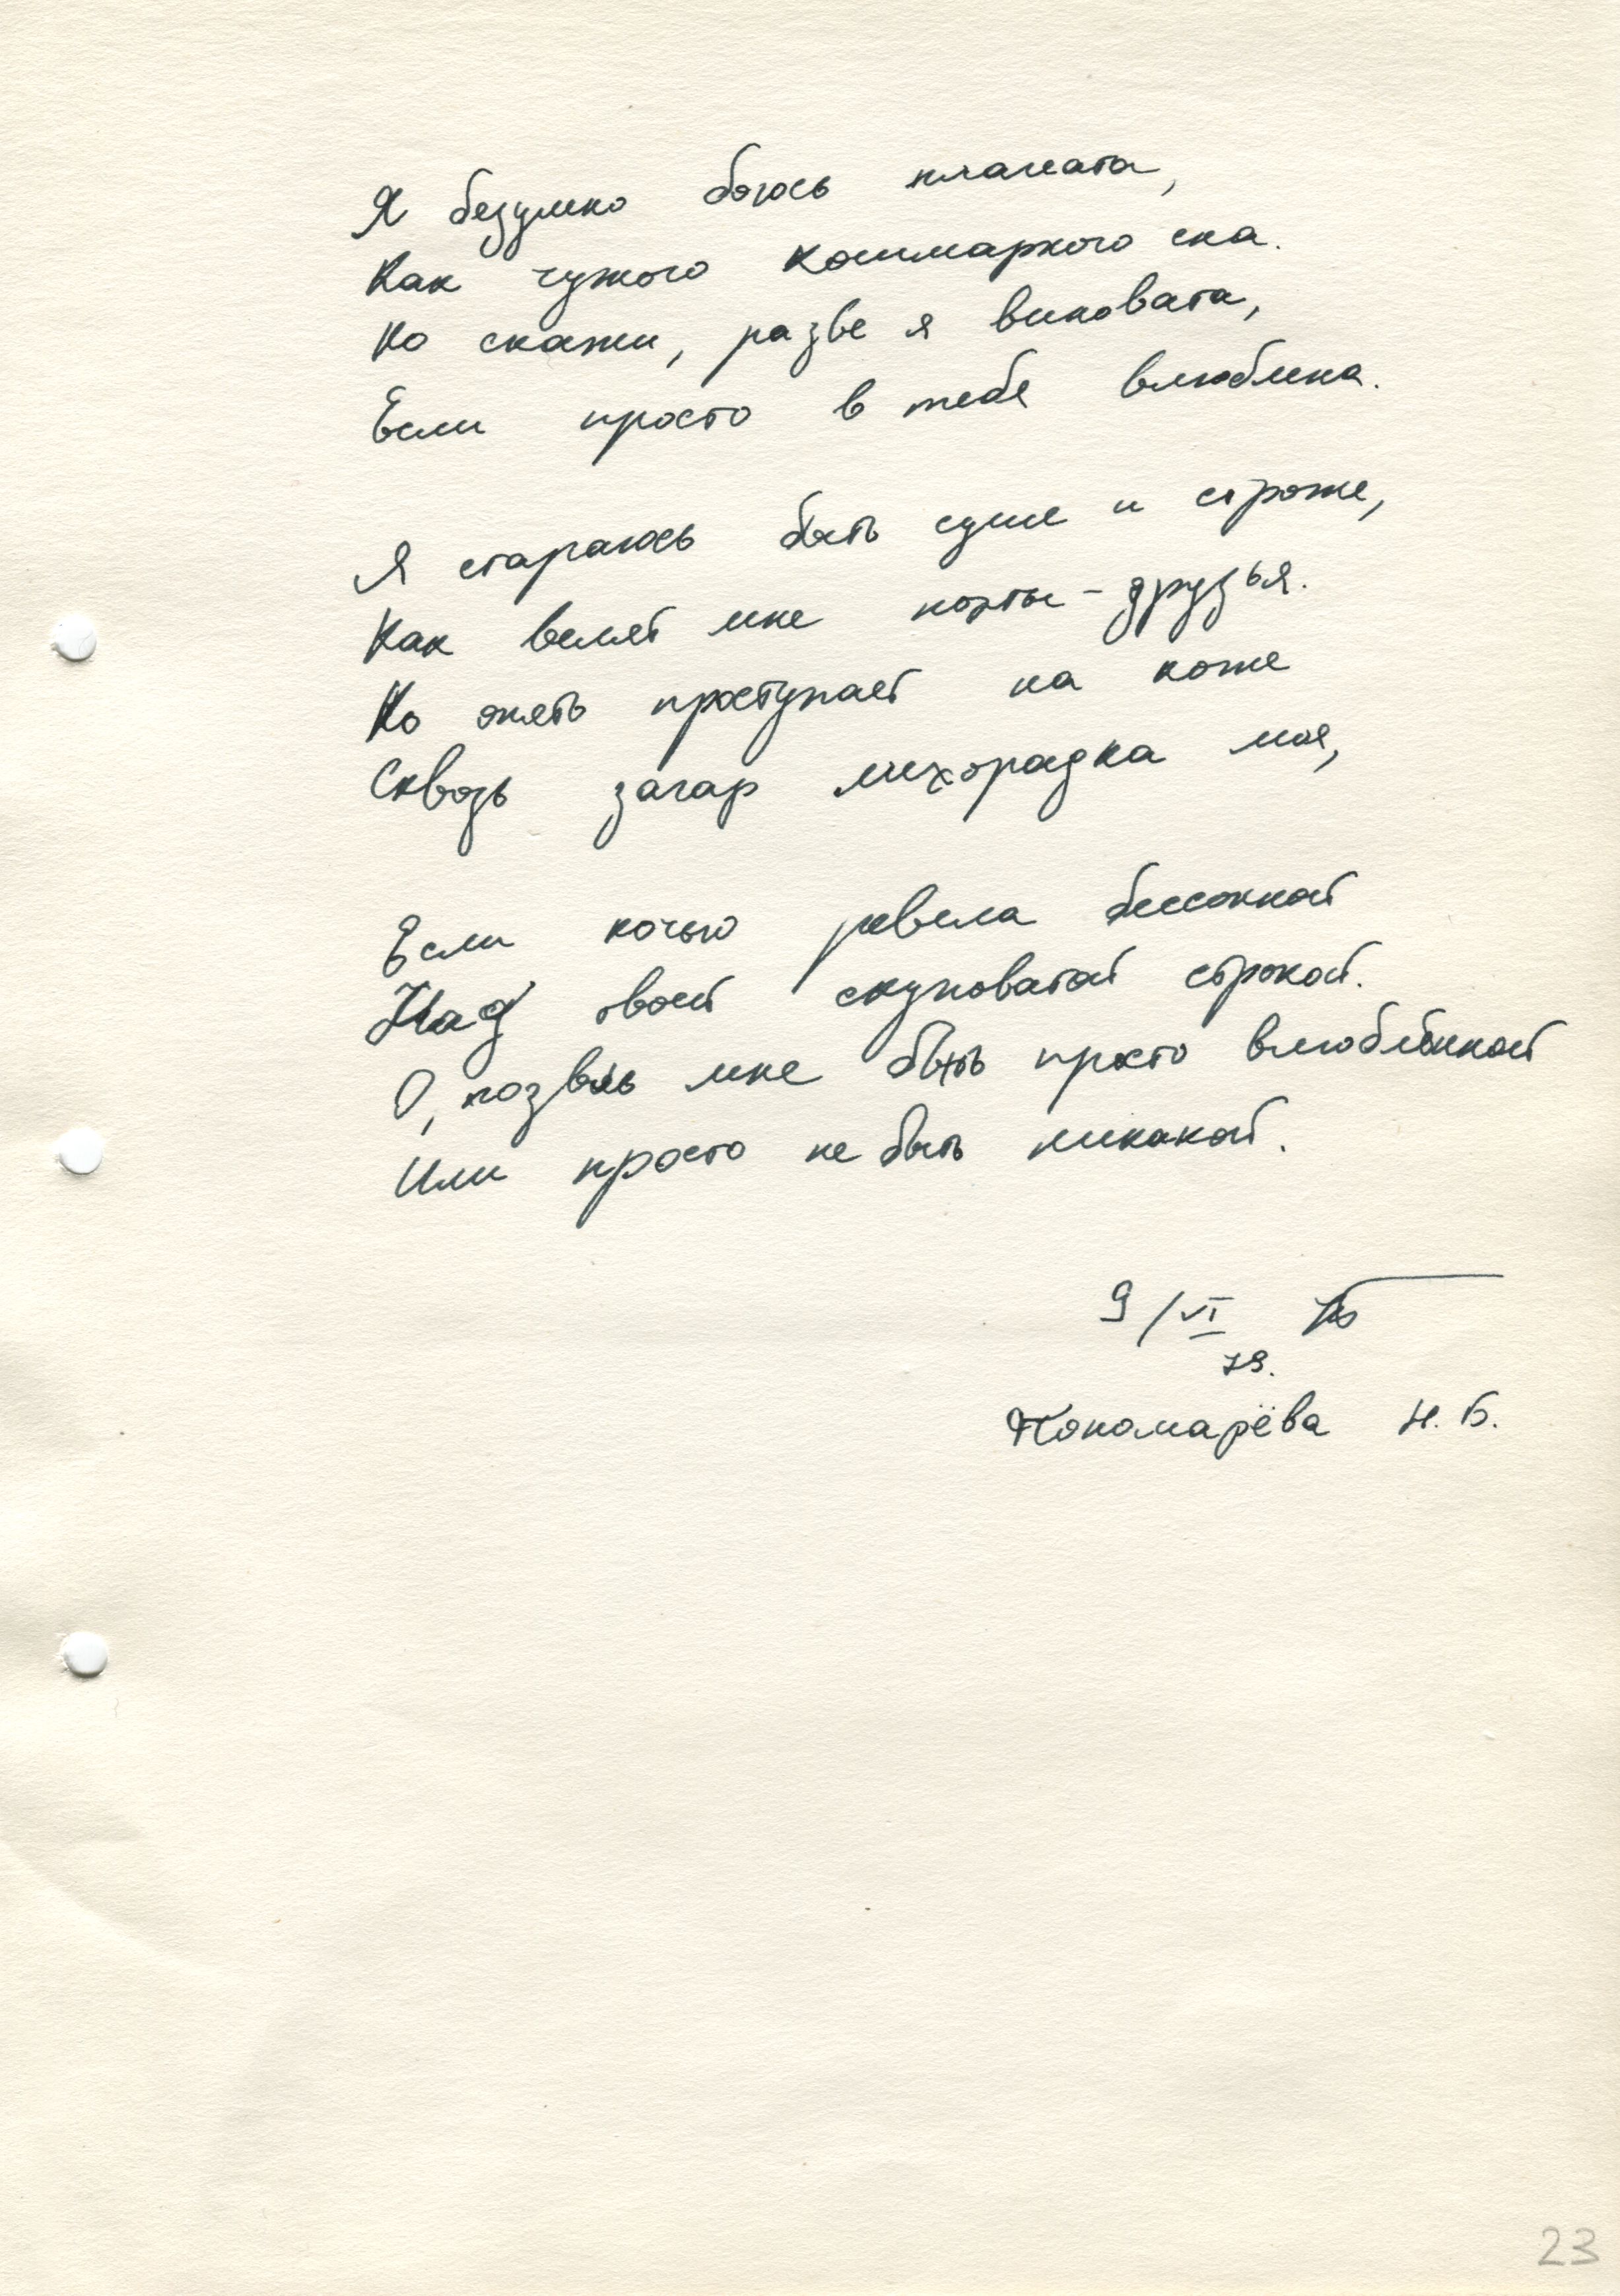 Я безумно боюсь плаката,
Как чужого кошмарного сна.
Но скажи, разве я виновата,
Если просто в тебя влюблена.
Я стараюсь быть суше и строже,
Как велят мне поэты-друзья.
Но опять проступает на коже
Сквозь загар лихорадка моя,
Если ночью ревела бессонной
Над твоей скуповатой строкой.
О, позволь мне быть просто влюблённой
Или просто не быть никакой.
9/VI
79.
Пономарёва Н. Б.
23